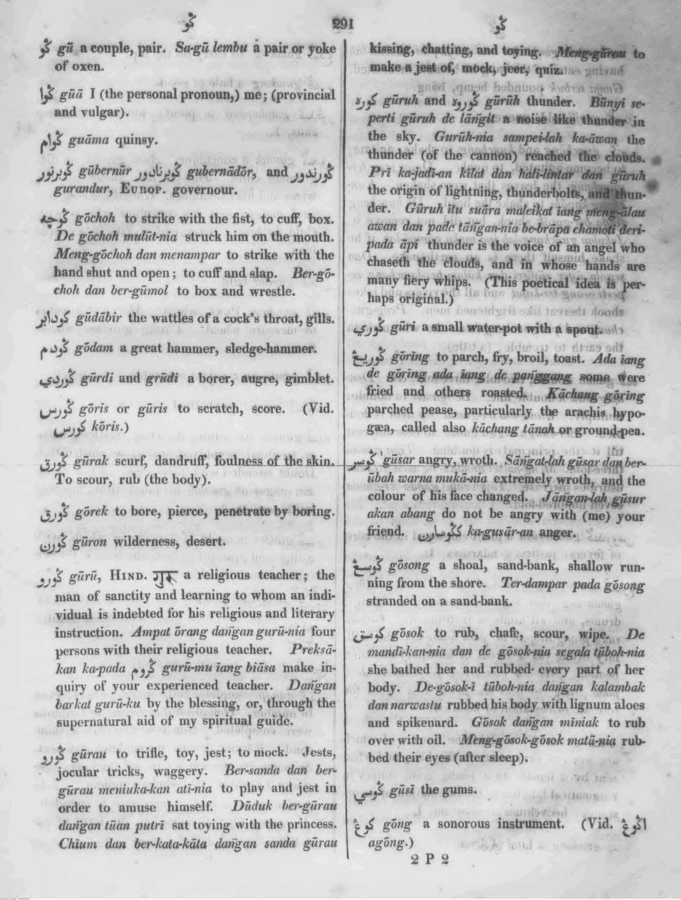 ڬو 291 ڬو
ڬو gū a couple, pair. Sa-gū lembu a pair or yoke
of oxen.
ڬوا gūā I (the personal pronoun,) me; (provincial
and vulgar).
ڬوام guāma quinsy.
ڬوبرنور gūbernūr ڬوبرنادور gubernādōr, and ڬورندور
gurandur, EUROP. governour.
ڬوچه gōchoh to strike with the fist, to cuff, box.
De gōchoh mulūt-nia struck him on the mouth.
Meng-gōchoh dan menampar to strike with the
hand shut and open; to cuff and slap. Ber-gō-
choh dan ber-gūmol to box and wrestle.
ڬودابر gūdābir the wattles of a cock's throat, gills.
ڬودم gōdam a great hammer, sledge-hammer.
ڬوردي gūrdi and grūdi a borer, augre, gimblet.
ڬورس gōris or gūris to scratch, score. (Vid.
کورس kōris.)
ڬورق gūrak scurf, dandruff, foulness of the skin.
To scour, rub (the body).
ڬورق gōrek to bore, pierce, penetrate by boring.
ڬورن gūron wilderness, desert.
ڬورو gūrū, HIND. गुरू a religious teacher; the
man of sanctity and learning to whom an indi-
vidual is indebted for his religious and literary
instruction. Ampat ōrang dañgan gurū-nia four
persons with their religious teacher. Preksā-
kan ka-pada ڬروم gurū-mu iang biāsa make in-
quiry of your experienced teacher. Dañgan
barkat gurū-ku by the blessing, or, through the
supernatural aid of my spiritual guide.
ڬورو gūrau to trifle, toy, jest; to mock. Jests,
jocular tricks, waggery. Ber-sanda dan ber-
gūrau meniuka-kan atī-nia to play and jest in
order to amuse himself. Dūduk ber-gūrau
dañgan tūan putrī sat toying with the princess.
Chium dan ber-kata-kāta dañgan sanda gūrau
kissing, chatting, and toying. Meng-gūrau to
make a jest of, mock, jeer, quiz.
ڬوره gūruh and ڬوروه gūrūh thunder. Būnyi se-
perti gūruh de lāñgit a noise like thunder in
the sky. Gurūh-nia sampei-lah ka-āwan the
thunder (of the cannon) reached the clouds.
Prī ka-jadī-an kīlat dan halī-lintar dan gūruh
the origin of lightning, thunderbolts, and thun-
der. Gūruh itu suāra maleikat iang meng-ālau
awan dan pade tāñgan-nia be-brāpa chamoti deri-
pada āpi thunder is the voice of an angel who
chaseth the clouds, and in whose hands are
many fiery whips. (This poetical idea is per-
haps original.)
ڬوري gūri a small water-pot with a spout.
ڬوريڠ gōring to parch, fry, broil, toast. Ada iang
de gōring ada iang de pañggang some were
fried and others roasted. Kāchang gōring
parched pease, particularly the arachis hypo-
gæa, called also kāchang tānah or ground-pea.
ڬوسر gūsar angry, wroth. Sāñgat-lah gūsar dan ber-
ūbah warna mukā-nia extremely wroth, and the
colour of his face changed. Jāñgan-lah gūsur
akan abang do not be angry with (me) your
friend. کڬوسارن ka-gusār-an anger.
ڬوسڠ gōsong a shoal, sand-bank, shallow run-
ning from the shore. Ter-dampar pada gōsong
stranded on a sand-bank.
ڬوسق gōsok to rub, chafe, scour, wipe. De
mandī-kan-nia dan de gōsok-nia segala tūboh-nia
she bathed her and rubbed every part of her
body. De-gōsok-ī tūboh-nia dañgan kalambak
dan narwastu rubbed his body with lignum aloes
and spikenard. Gōsok dañgan mīniak to rub
over with oil. Meng-gōsok-gōsok matā-nia rub-
bed their eyes (after sleep).
ڬوسي gūsī the gums.
ڬوڠ gōng a sonorous instrument. (Vid. اڬوڠ
agōng.)
2 P 2